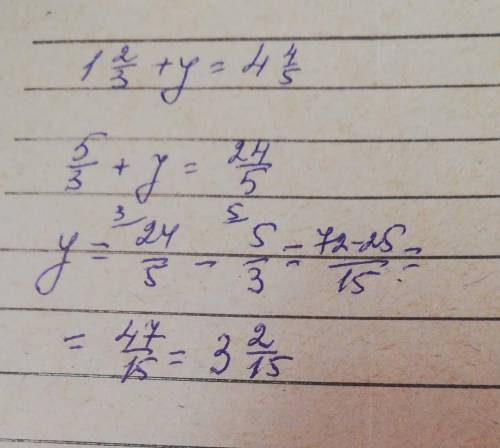 1 2/3 + y = 4 4/5
5/3 + y = 24/5
y = ³⁄ 24/5 - ⁵⁄ 5/3 = 72-25/15 =
= 47/15 = 3 2/15